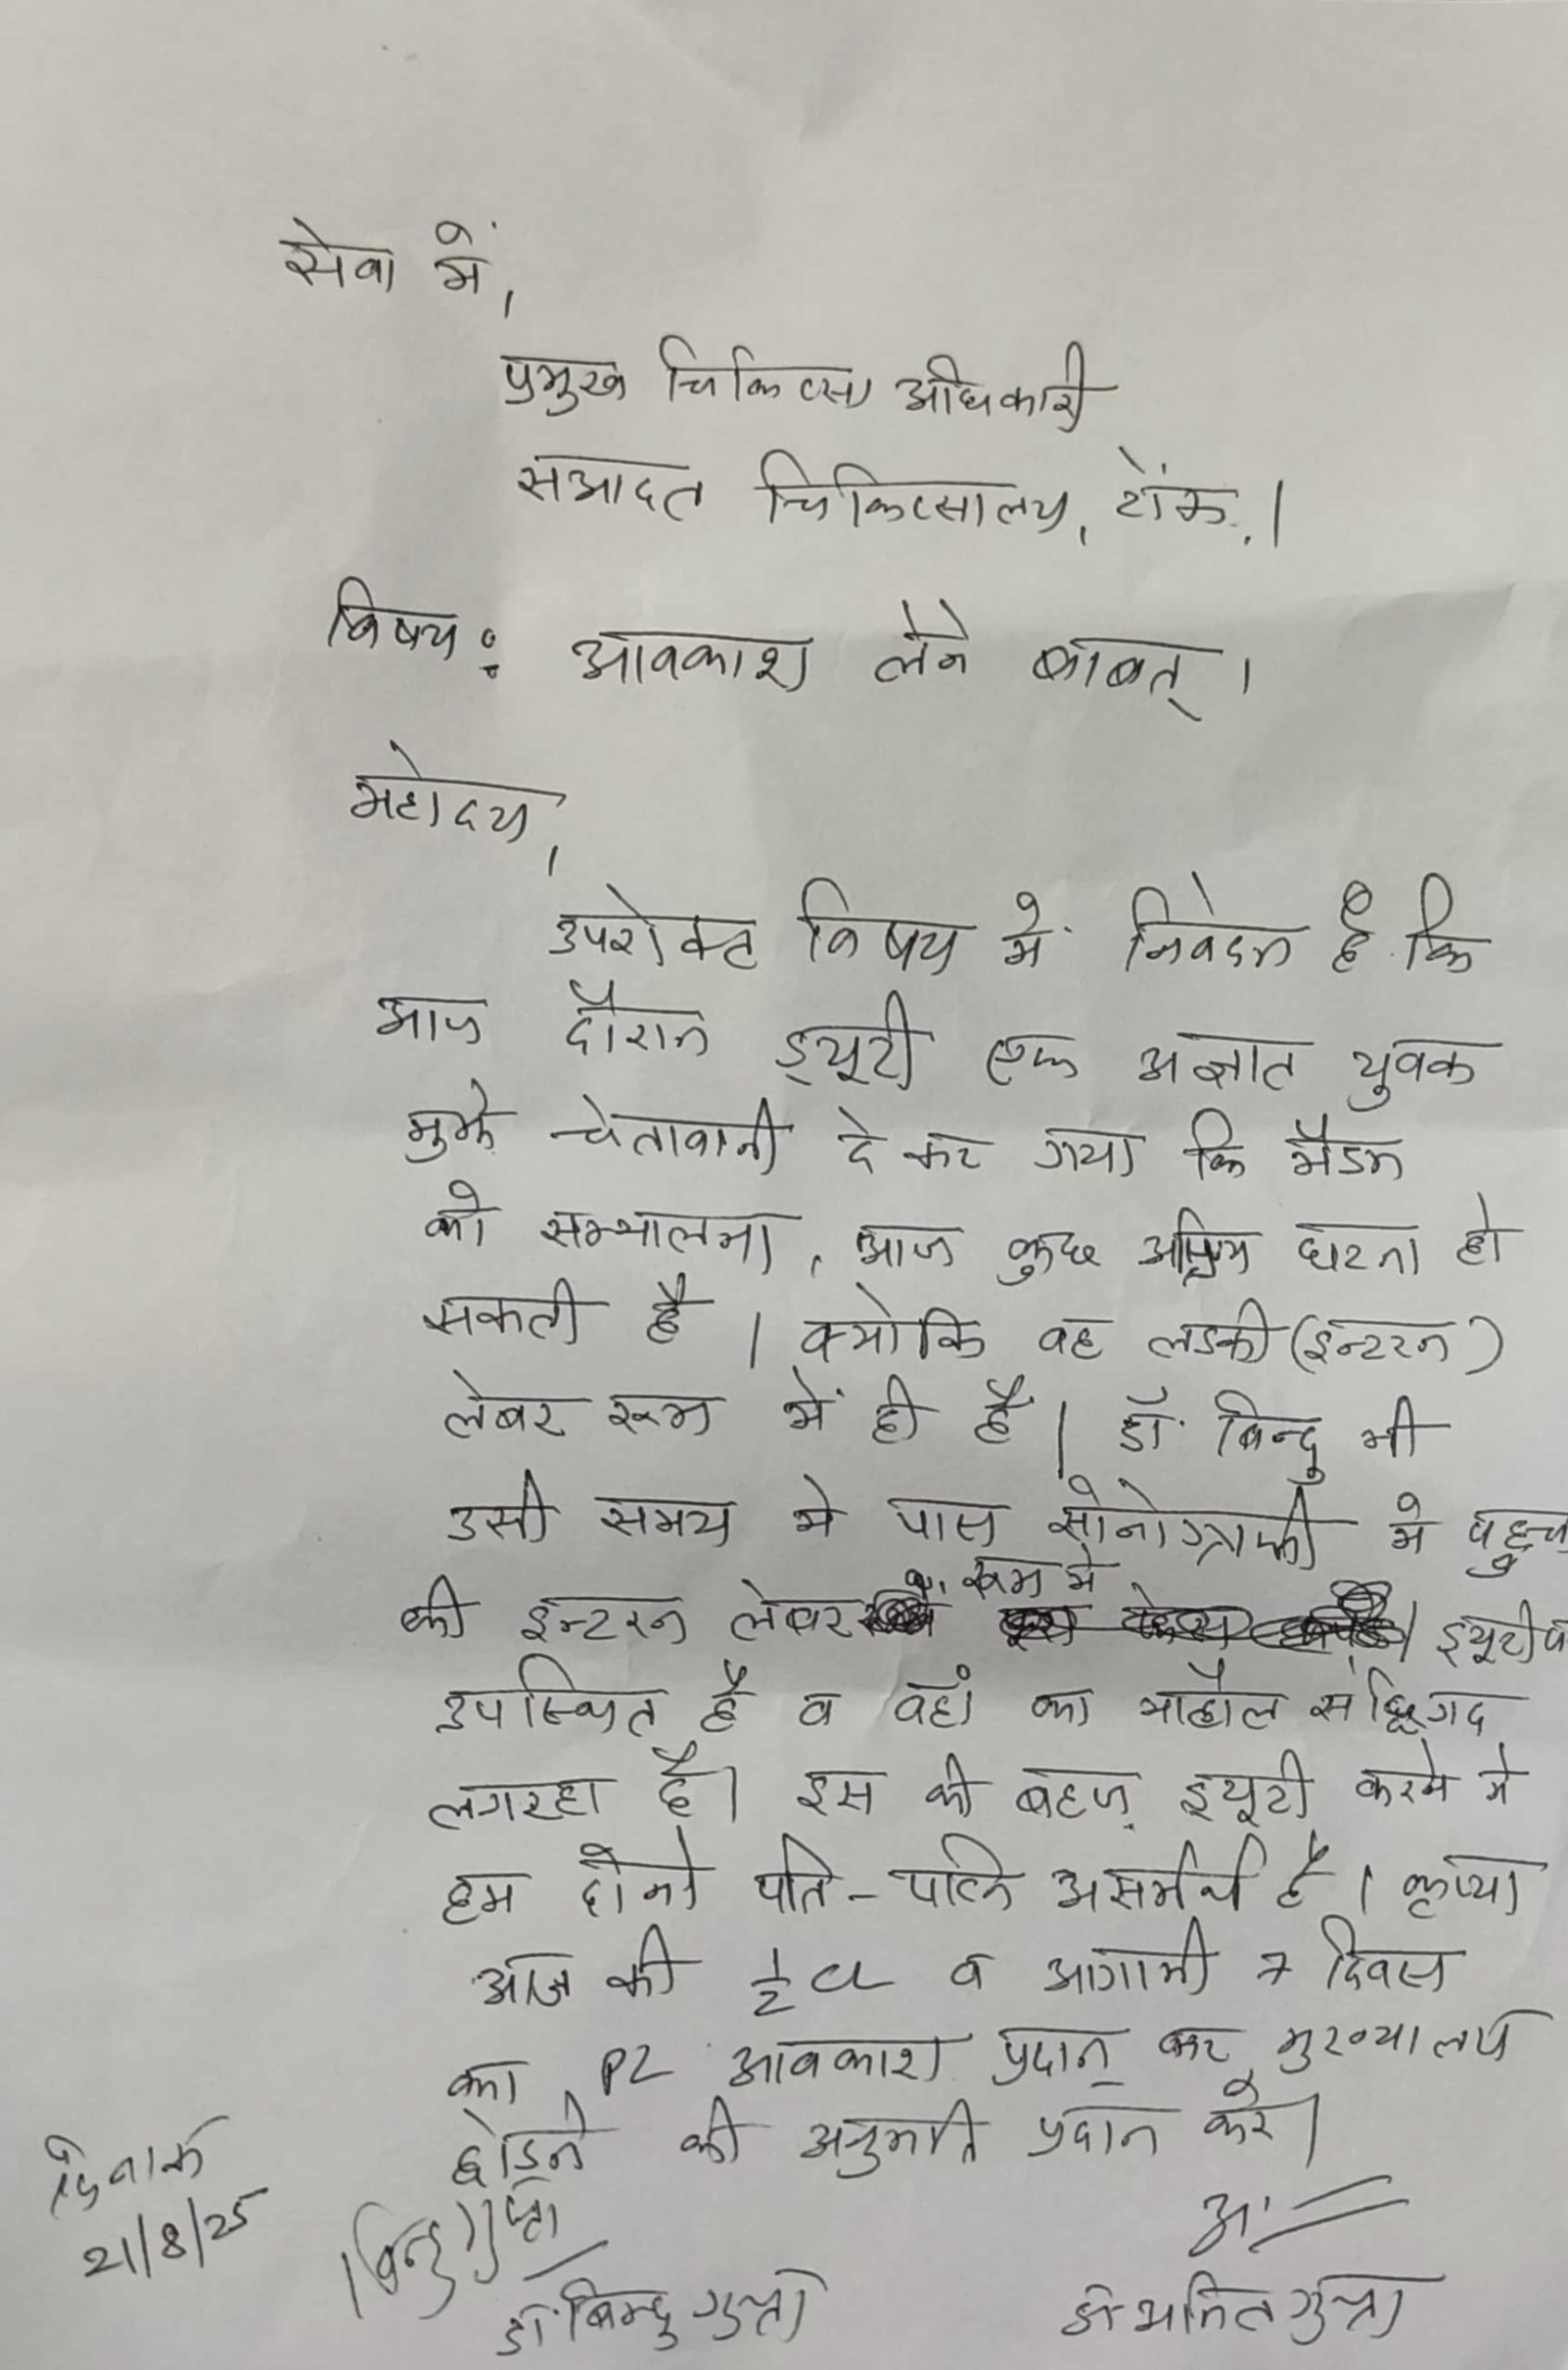 सेवा में,
प्रमुख चिकित्सा अधिकारी
सआदत चिकित्सालय, टोंक.।
विषय: आवकाश लेने बाबत्।
महोदय,
उपरोक्त विषय में निवेदन है कि
आज दौरान ड्यूटी एक अज्ञात युवक
मुझे चेतावानी दे कर गया कि मैडम
को सम्भालना, आज कुछ अप्रिय घटना हो
सकती है। क्योकि वह लडकी (इन्टरन)
लेबर रूम में ही है। डॉ. बिन्दु भी
उसी समय मे पास सोनोग्राफी मे पहुन्च
की इन्टरन लेबर रूम मे ड्यूटी प
उपस्थित है व वहां का माहौल
लगरहा है। इस की बहज् ड्यूटी करने मे
हम दोनो पति-पत्नि असर्मथ है। कृप्या
आज की ½ CL व आगामी 7 दिवस
का PL आवकाश प्रदान् कर मुख्यालय
छोडने की अनुमति प्रदान करे।
दिनाक
21/8/25
बिन्दु गुप्ता
डॉ. बिन्दु गुप्ता
डॉ
गुप्ता